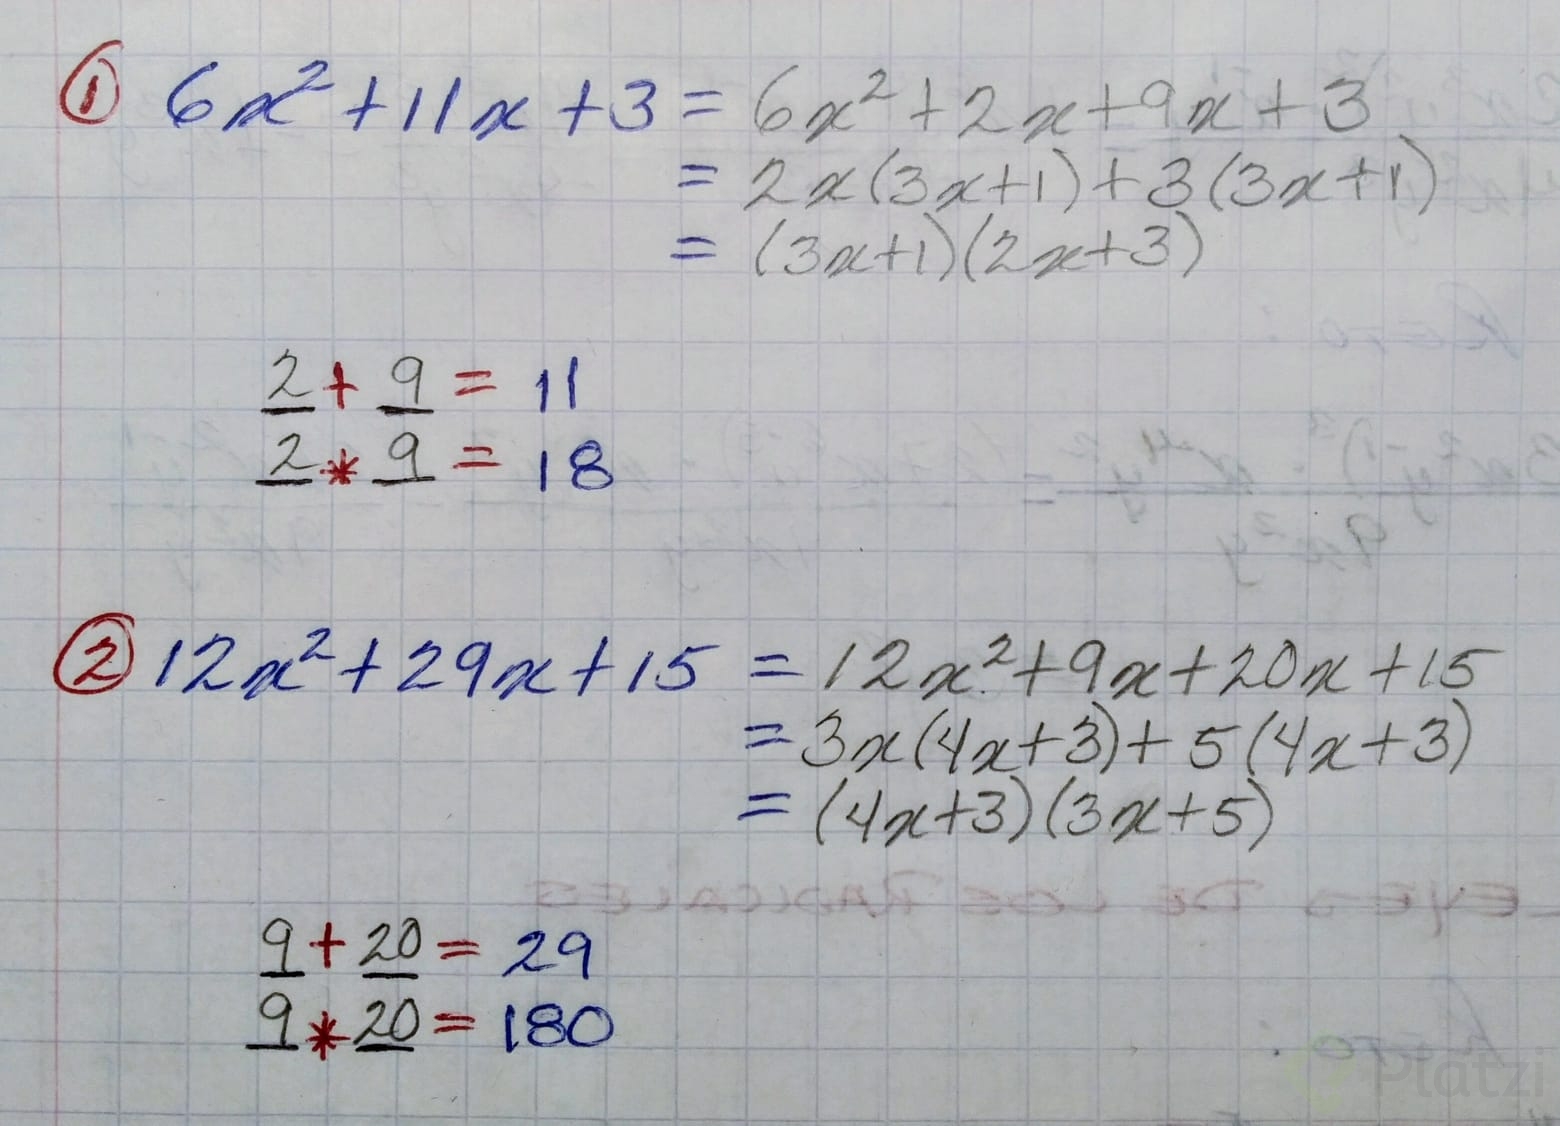 ① 6x² + 11x + 3 = 6x² + 2x + 9x + 3
= 2x(3x+1) + 3(3x+1)
= (3x+1)(2x+3)
2 + 9 = 11
2 * 9 = 18
② 12x² + 29x + 15 = 12x² + 9x + 20x + 15
= 3x(4x+3) + 5(4x+3)
= (4x+3)(3x+5)
LEYES DE LOS RADICALES
9 + 20 = 29
9 * 20 = 180
Reto:
Platzi